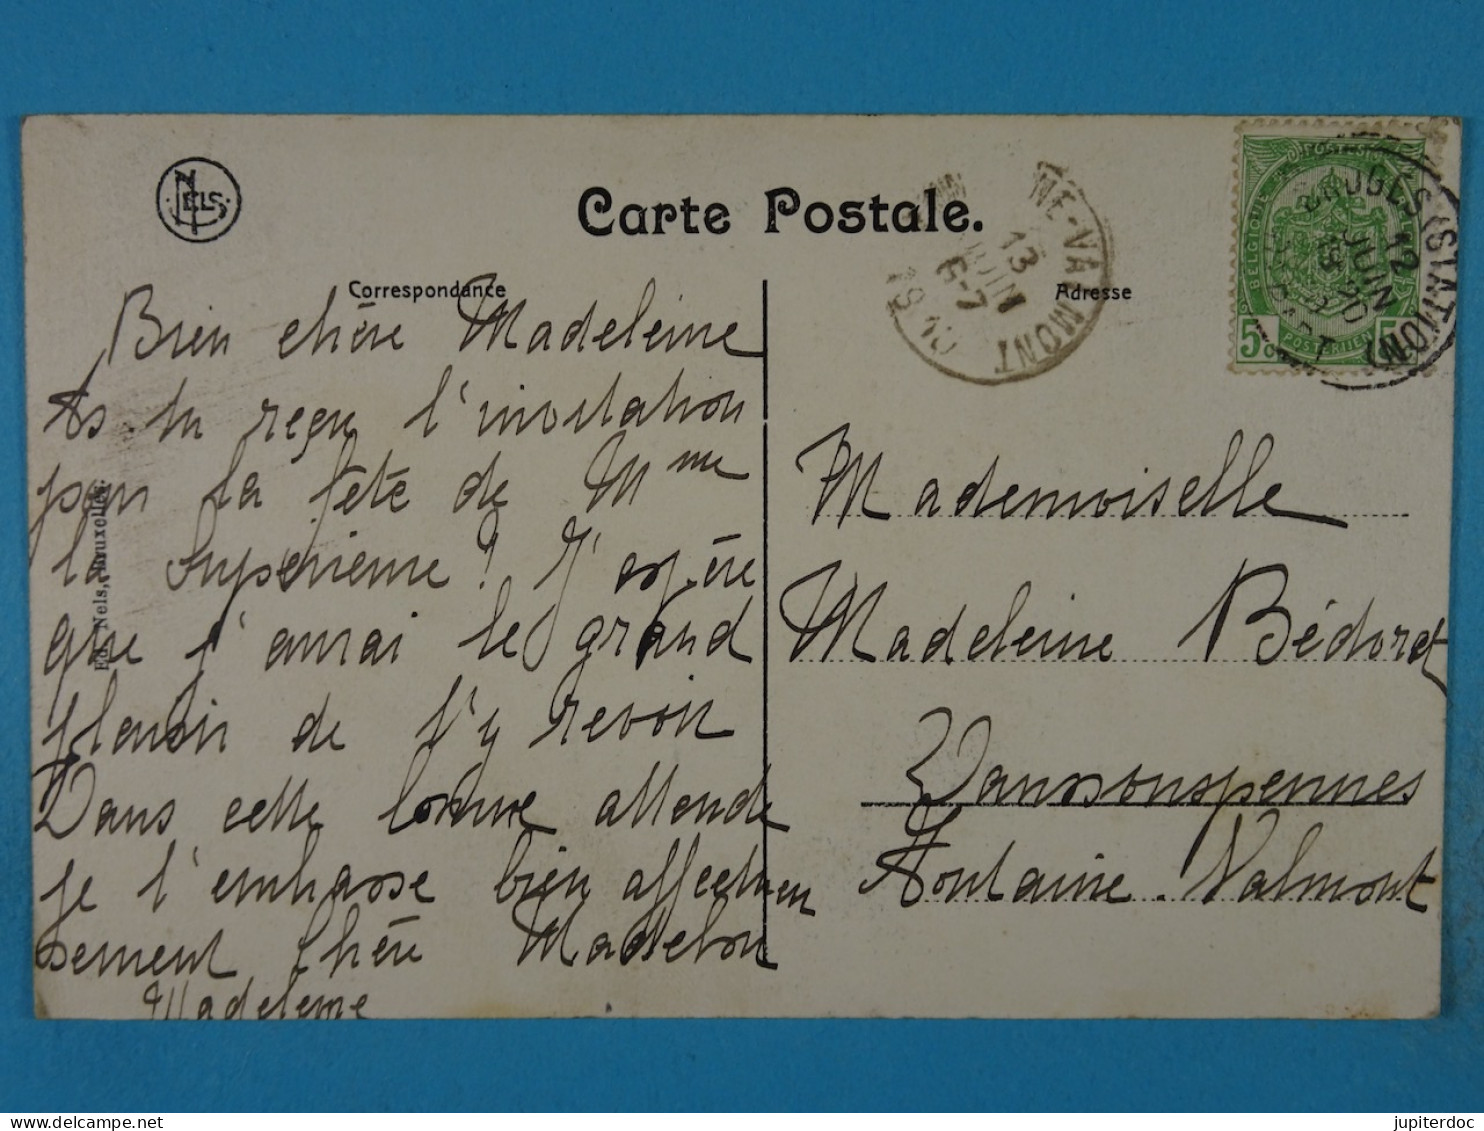 NELS
Carte Postale.
Correspondance
Adresse
Bien chère Madeleine
As-tu reçu l'invitation
pour la fête de Mme
la Supérieure ! J'espère
que j'aurai le grand
plaisir de t'y revoir
Dans cette bonne attende
je t'embrasse bien affectueu
sement chère Madelon
Madeleine
Ed. Nels, Bruxelles.
NE-VALMONT
13
JUIN
6-7
1910
BRUGES (STATION)
12
JUIN
BELGIQUE
5c
POSTERIJEN
Mademoiselle
Madeleine Bédoret
Fontaine-Valmont
jupiterdoc